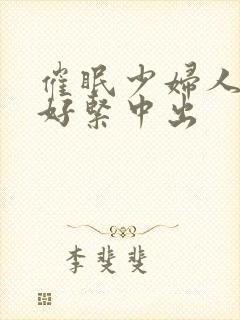 催眠少婦人
好緊中出
李斐斐